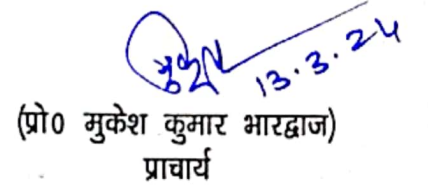 मुकेश
13.3.24
(प्रो० मुकेश कुमार भारद्वाज)
प्राचार्य